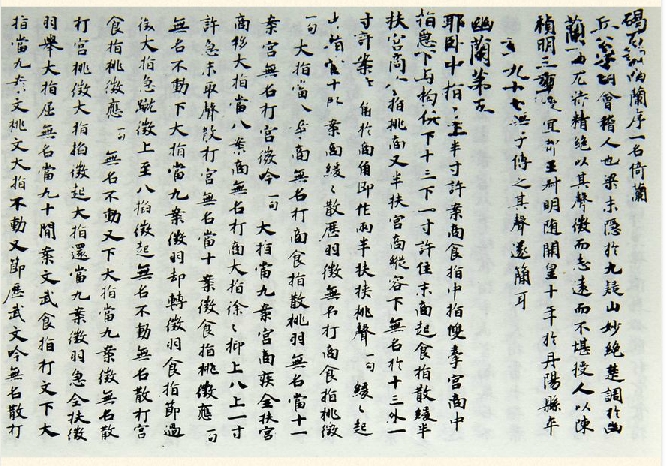 碣石調幽蘭序一名倚蘭
丘公字明會稽人也梁末隱於九疑山妙絕楚調於幽
蘭一曲尤特精絕以其聲微而志遠而不堪授人以陳
禎明三年授宜都王叔明隨開皇十年於丹陽縣卒
年九十七無子傳之其聲遂簡耳
幽蘭第五
耶臥中指十上半寸許案商食指中指雙牽宮商中
指急下与拘俱下十三下一寸許住末商起食指散緩半
扶宮商食指挑商又半扶宮商縱容下無名於十三外一
寸許案商角於商角即作兩半扶挾挑聲一句緩〻起
指當十案商緩〻散歷羽徵無名打商食指挑徵
一句大指當八案商無名打商食指散挑羽無名當十一
案宮無名打宮徵吟一句大指當九案宮商疾全扶宮
商移大指當八案商無名打商大指徐〻抑上八上一寸
許急末取聲散打宮無名當十案徵食指挑徵應一句
無名不動下大指當九案徵羽却轉徵羽食指節過
徵大指急蹴徵上至八抬徵起無名不動無名散打宮
食指挑徵應一句無名不動又下大指當九案徵無名散
打宮挑徵大指抬徵起大指還當九案徵羽急全扶徵
羽舉大指屈無名當九十間案文武食指打文下大
指當九案文挑文大指不動又節歷武文吟無名散打